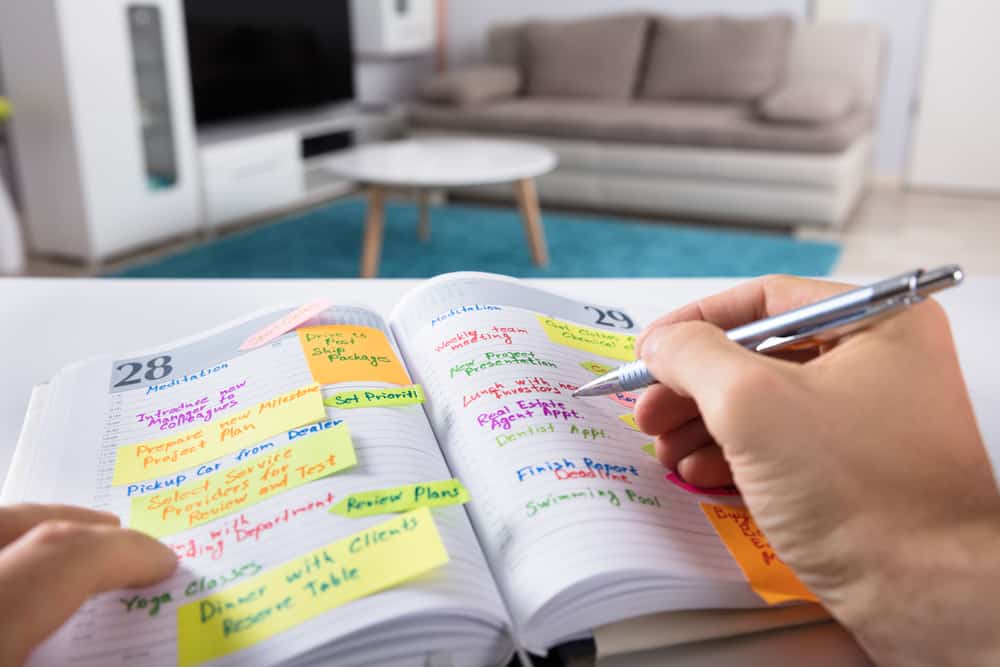 28
Meditation
Introduce new
Manager to
colleagues
Prepare Milestone
Project Plan
Pickup Car from Dealer
Select Service
Providers for Test
Review and
with Department
Yoga Classes
Dinner with Clients
Reserve Table
Drive to
Post
Ship
Packages
Set Prioriti
Review Plans
29
Meditation
Weekly team
meeting
New Project
Presentation
Lunch with
Investors
Real Estate
Agent Appt.
Dentist Appt.
Finish Report
Deadline
Swimming Pool